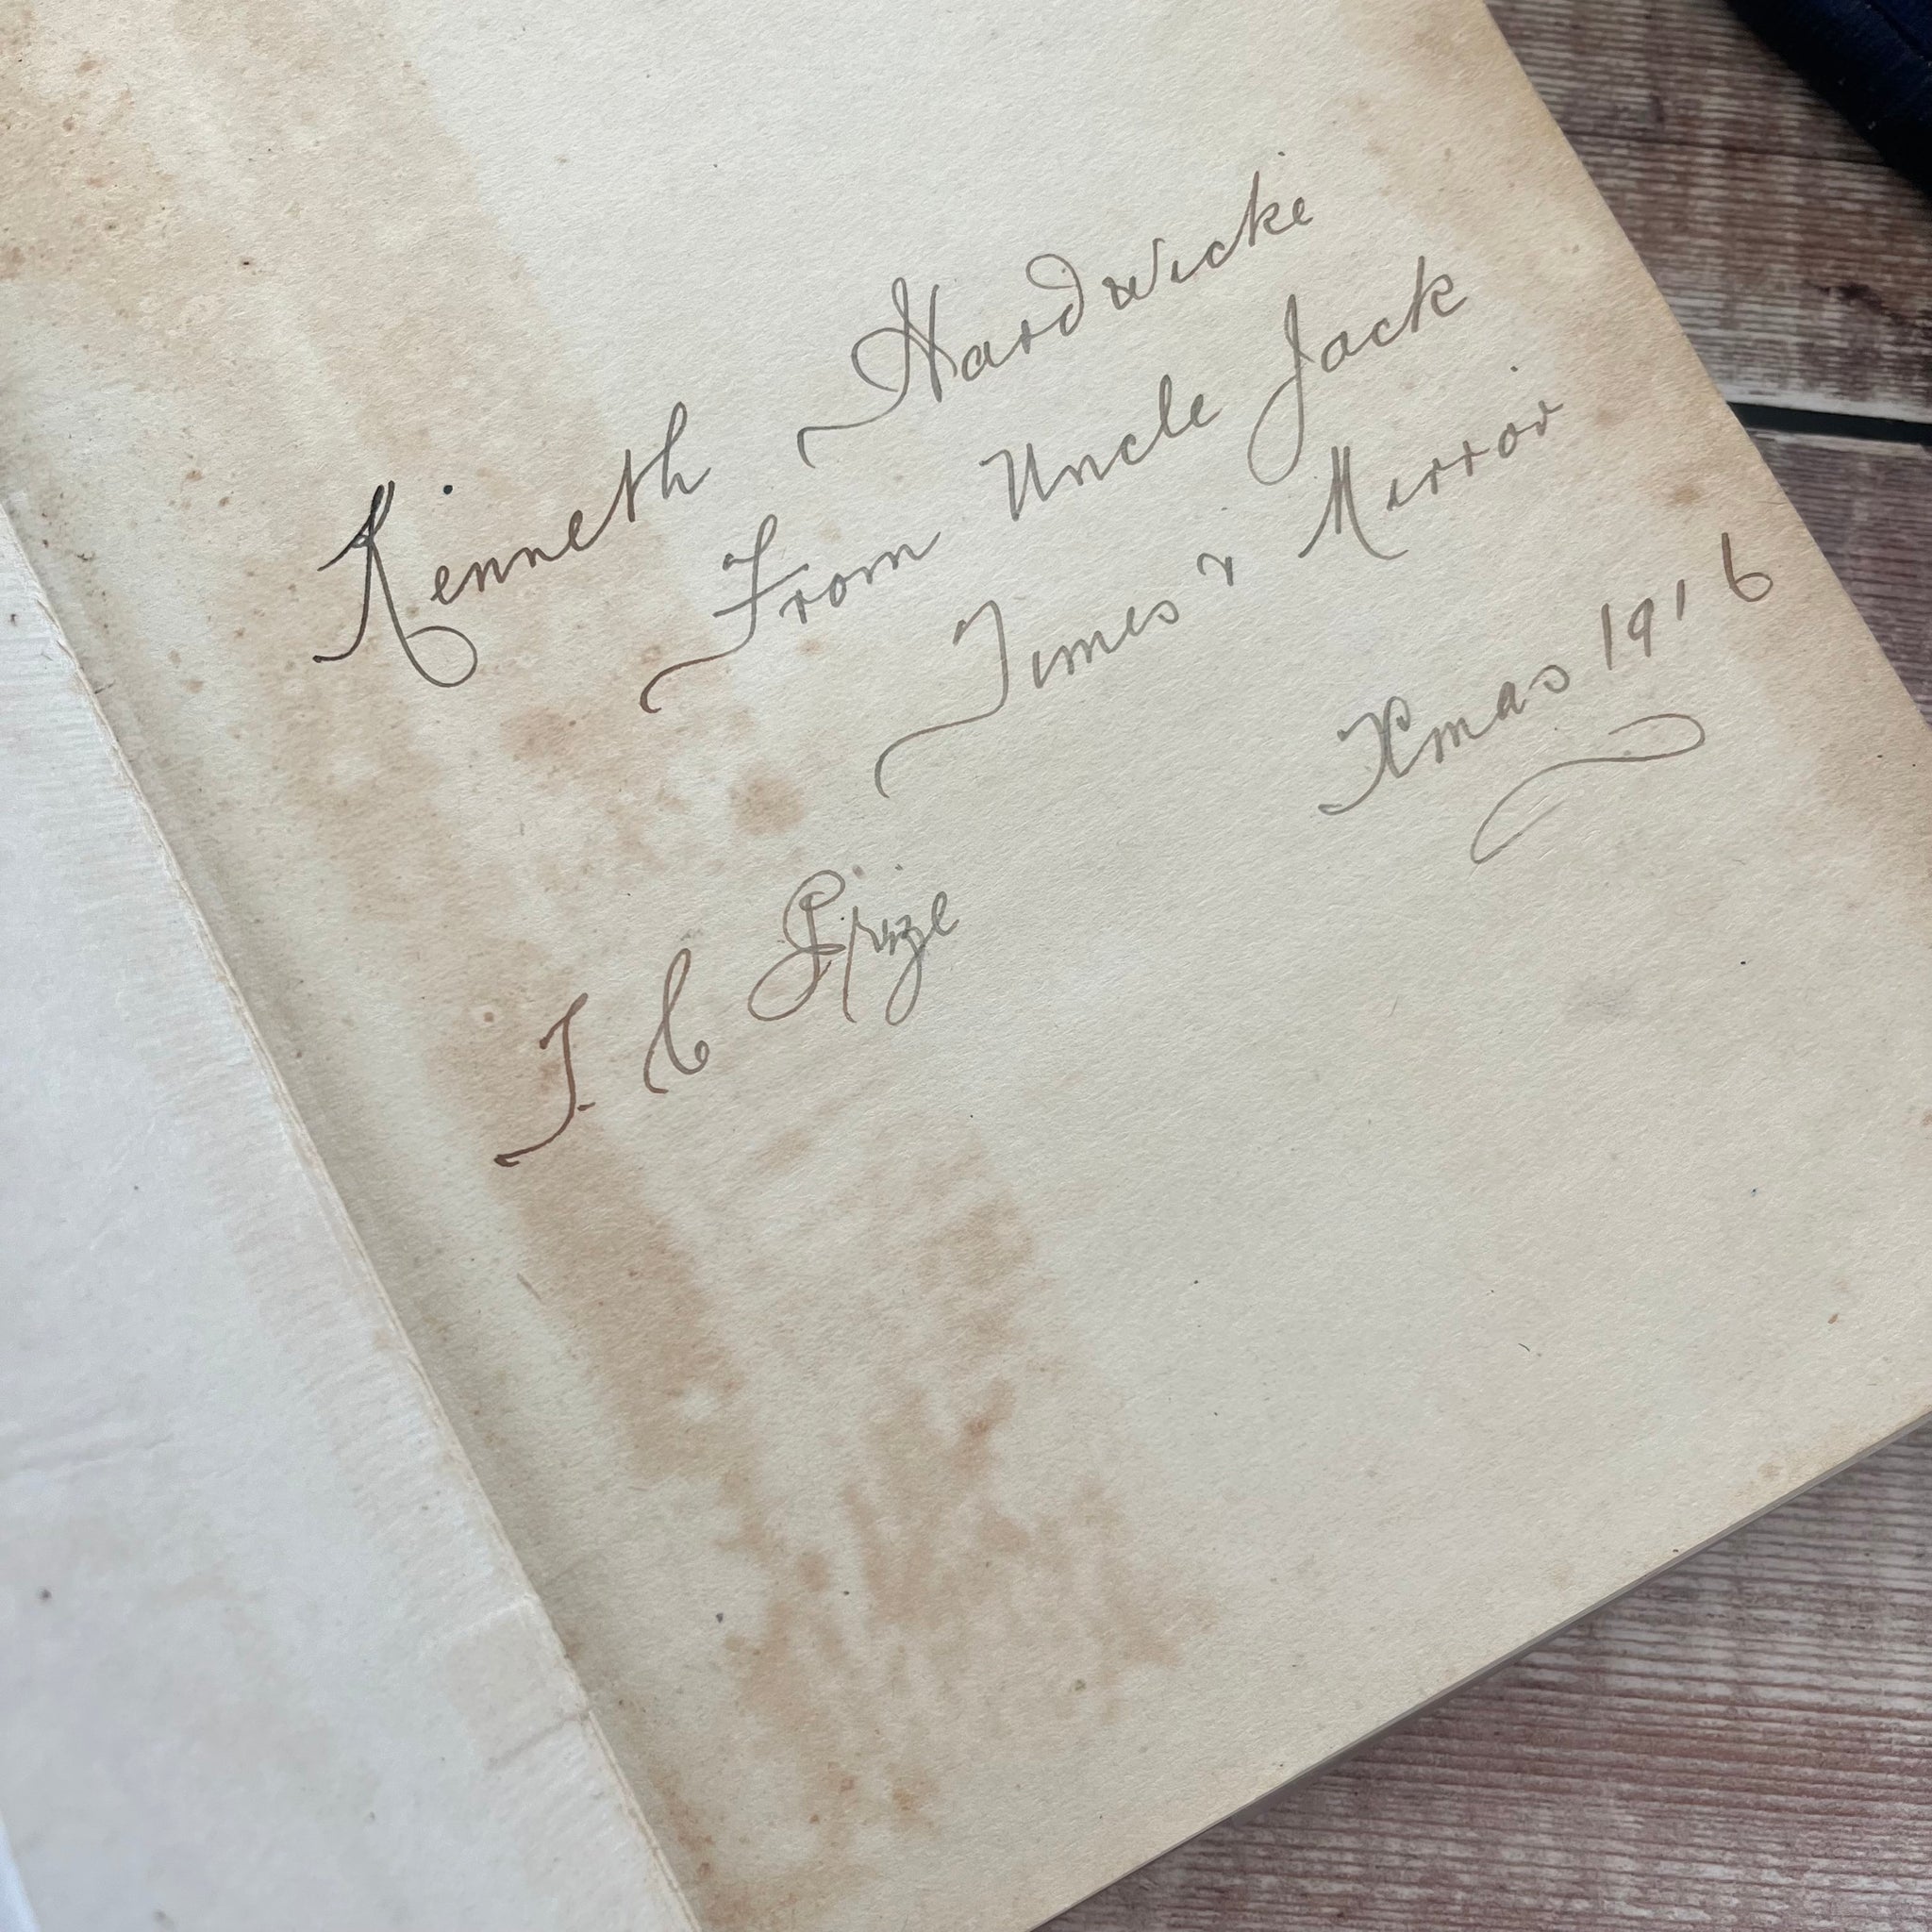 Kenneth Hardwicke
From Uncle Jack
Times & Mirror
Xmas 1916
I. C Prize